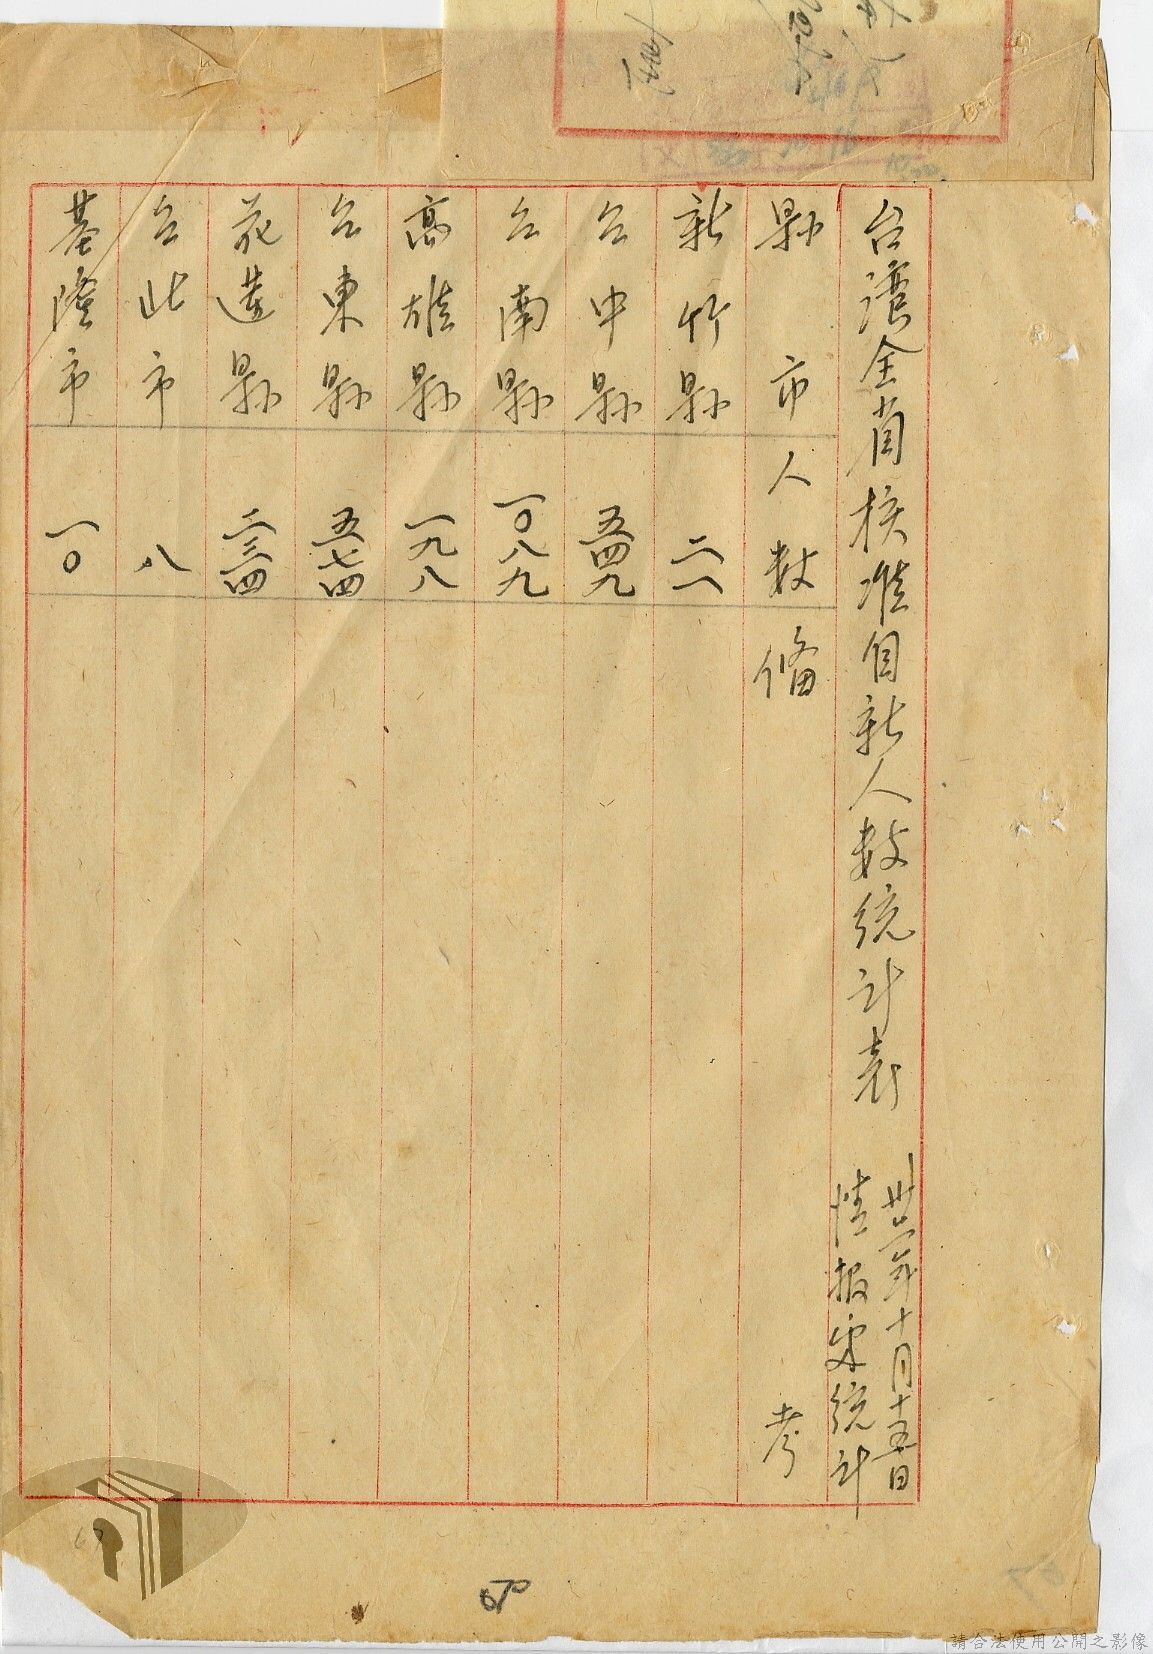 台湾全省核准自新人数統計表
卅六年十月十五日
情报室統計
縣市 人数 備考
新竹縣 二一
台中縣 五四九
台南縣 一〇八九
高雄縣 一九八
台東縣 五七四
花蓮縣 二三四
台北市 八
基隆市 一〇
請合法使用公開之影像